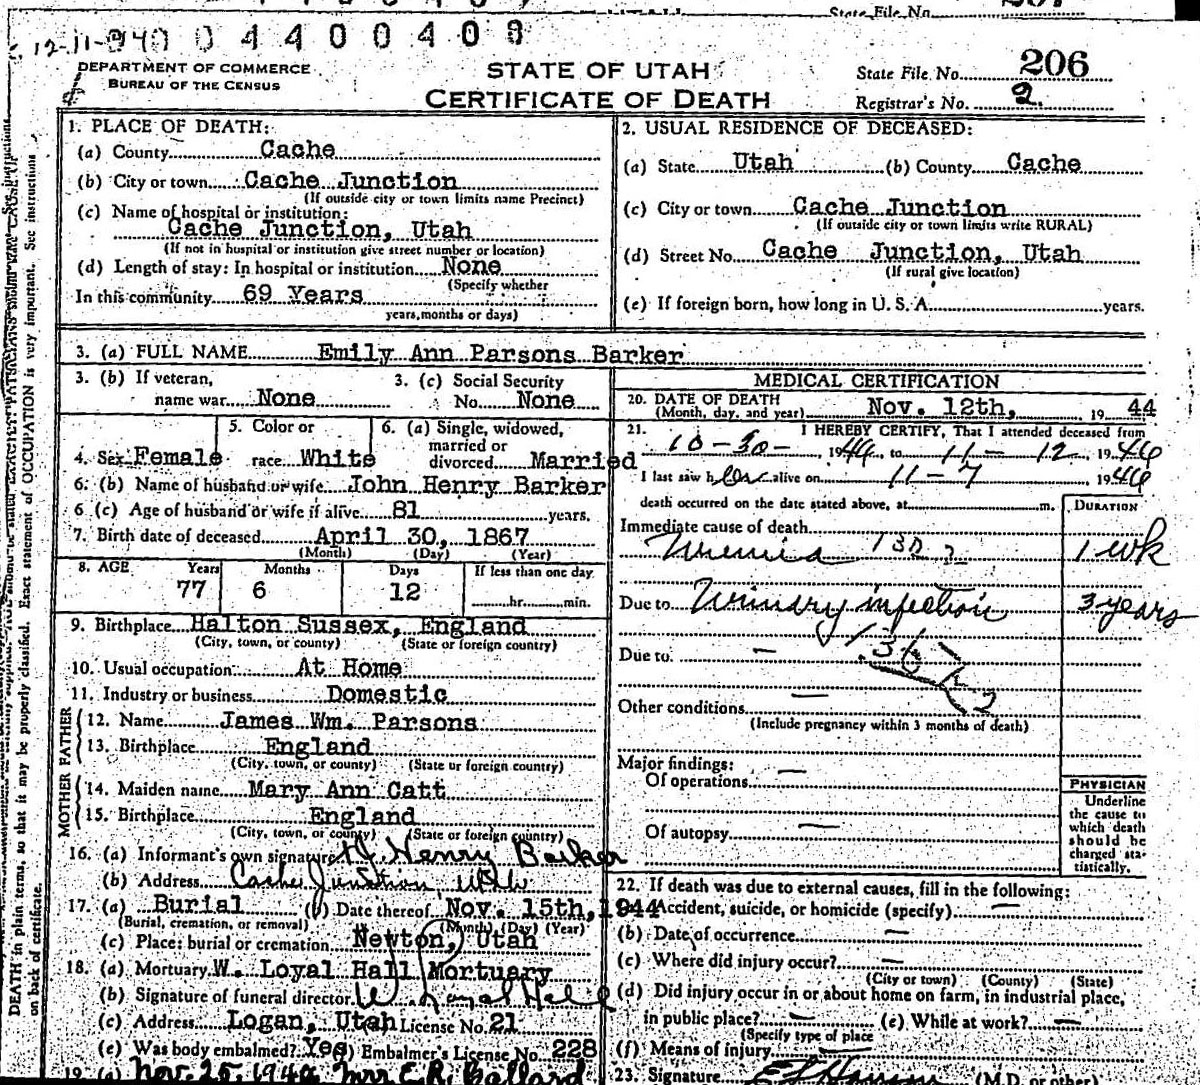 State File No.
12-11-940 04400408
DEPARTMENT OF COMMERCE
BUREAU OF THE CENSUS
STATE OF UTAH
CERTIFICATE OF DEATH
State File No. 206
Registrar's No. 2.
1. PLACE OF DEATH:
(a) County Cache
(b) City or town Cache Junction
(If outside city or town limits name Precinct)
(c) Name of hospital or institution:
Cache Junction, Utah
(If not in hospital or institution give street number or location)
(d) Length of stay: In hospital or institution None
(Specify whether
In this community 69 Years
years, months or days)
2. USUAL RESIDENCE OF DECEASED:
(a) State Utah (b) County Cache
(c) City or town Cache Junction
(If outside city or town limits write RURAL)
(d) Street No. Cache Junction, Utah
(If rural give location)
(e) If foreign born, how long in U. S. A. years.
3. (a) FULL NAME Emily Ann Parsons Barker
3. (b) If veteran,
name war None
3. (c) Social Security
No. None
4. Sex Female
5. Color or
race White
6. (a) Single, widowed,
married or
divorced Married
6. (b) Name of husband or wife John Henry Barker
6 (c) Age of husband or wife if alive 81 years.
7. Birth date of deceased April 30, 1867
(Month) (Day) (Year)
8. AGE Years Months Days If less than one day
77 6 12 hr. min.
9. Birthplace Halton Sussex, England
(City, town, or county) (State or foreign country)
10. Usual occupation At Home
11. Industry or business Domestic
FATHER
12. Name James Wm. Parsons
13. Birthplace England
(City, town, or county) (State or foreign country)
MOTHER
14. Maiden name Mary Ann Catt
15. Birthplace England
(City, town, or county) (State or foreign country)
16. (a) Informant's own signature J. Henry Barker
(b) Address Cache Junction, Utah
17. (a) Burial (b) Date thereof Nov. 15th, 1944
(Burial, cremation, or removal) (Month) (Day) (Year)
(c) Place: burial or cremation Newton, Utah
18. (a) Mortuary W. Loyal Hall Mortuary
(b) Signature of funeral director W. Loyal Hall
(c) Address Logan, Utah License No. 21
(e) Was body embalmed? Yes Embalmer's License No. 228
19. (a) Nov. 25, 1944 Mrs E. R. Ballard
MEDICAL CERTIFICATION
20. DATE OF DEATH
(Month, day, and year) Nov. 12th, 19 44
21. I HEREBY CERTIFY, That I attended deceased from
10-30- 1944, to 11-12 1944
I last saw her alive on 11-7 1944
death occurred on the date stated above, at m.
DURATION
Immediate cause of death
Uremia 132 1 wk
Due to Urinary infection 3 years
Due to —
Other conditions —
(Include pregnancy within 3 months of death)
Major findings:
Of operations —
Of autopsy —
PHYSICIAN
Underline
the cause to
which death
should be
charged sta-
tistically.
22. If death was due to external causes, fill in the following:
Accident, suicide, or homicide (specify) —
(b) Date of occurrence —
(c) Where did injury occur? —
(City or town) (County) (State)
(d) Did injury occur in or about home on farm, in industrial place,
in public place? — (e) While at work? —
(Specify type of place
(f) Means of injury
23. Signature (M.D. or other)
DEATH in plain terms, so that it may be properly classified. Exact statement of OCCUPATION is very important. See instructions
on back of certificate.